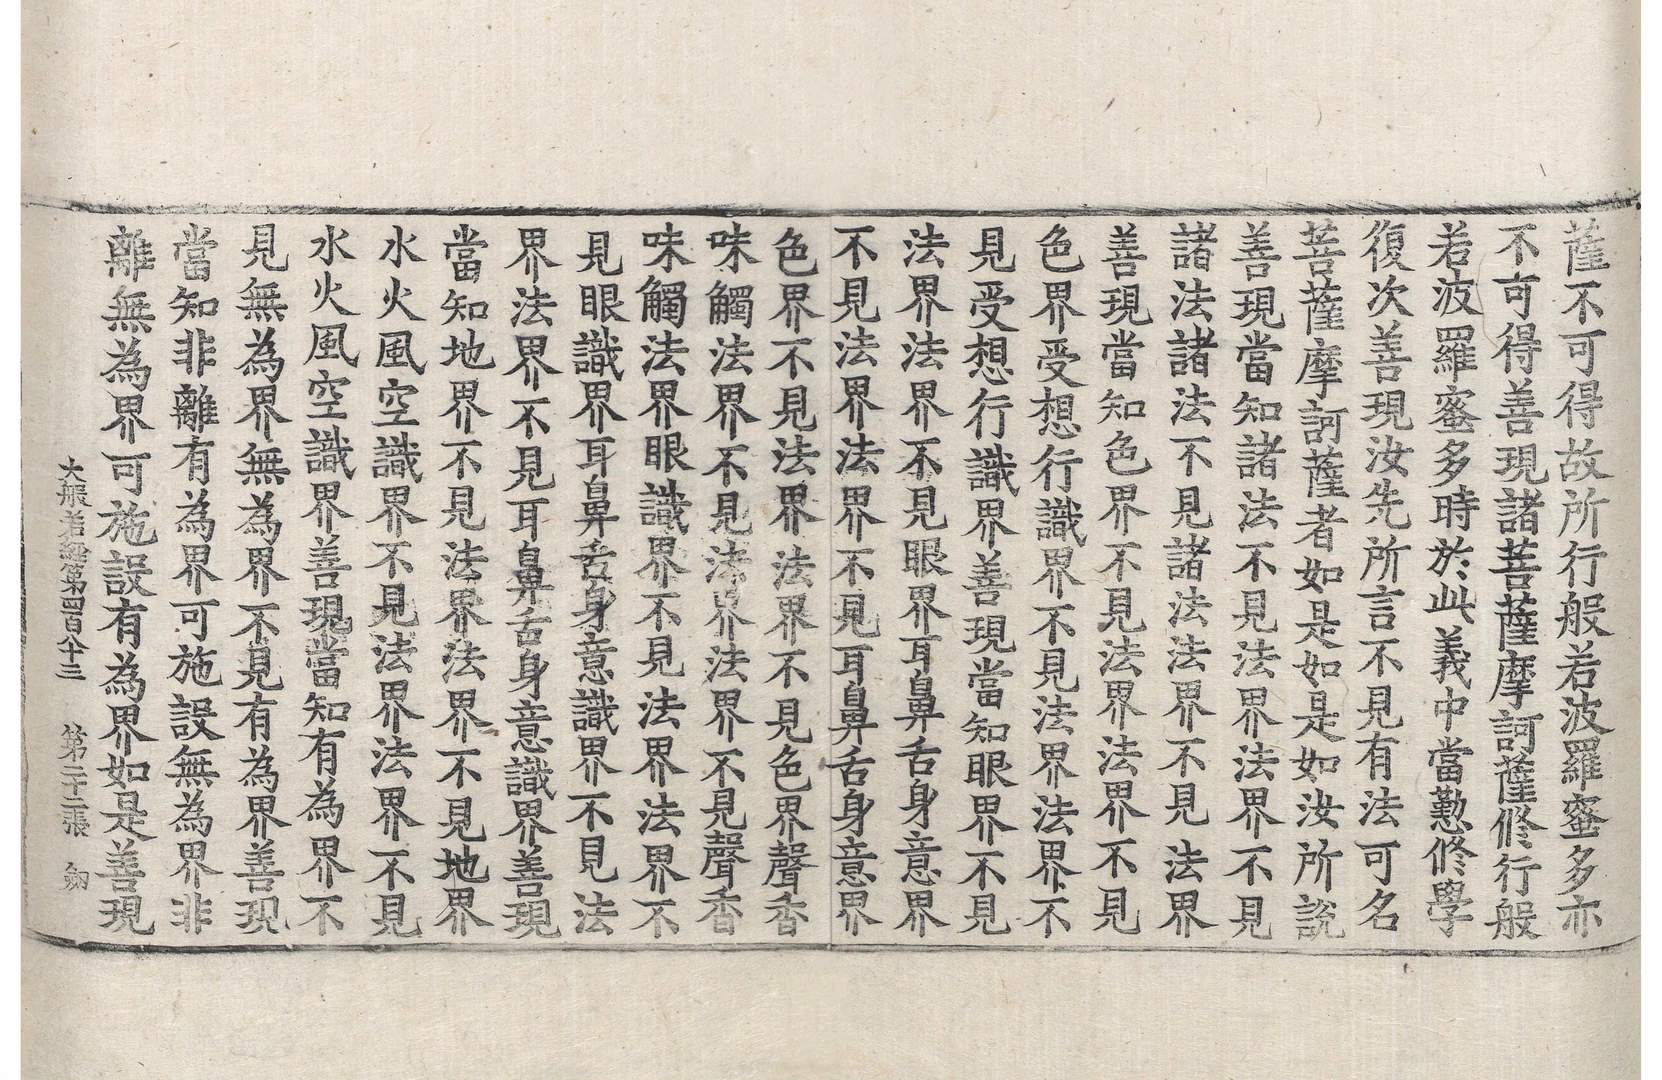 薩不可得故所行般若波羅蜜多亦
不可得善現諸菩薩摩訶薩修行般
若波羅蜜多時於此義中當勤修學
復次善現汝先所言不見有法可名
菩薩摩訶薩者如是如是如汝所說
善現當知諸法不見法界法界不見
諸法諸法不見諸法法界不見法界
善現當知色界不見法界法界不見
色界受想行識界不見法界法界不
見受想行識界善現當知眼界不見
法界法界不見眼界耳鼻舌身意界
不見法界法界不見耳鼻舌身意界
色界不見法界法界不見色界聲香
味觸法界不見法界法界不見聲香
味觸法界眼識界不見法界法界不
見眼識界耳鼻舌身意識界不見法
界法界不見耳鼻舌身意識界善現
當知地界不見法界法界不見地界
水火風空識界不見法界法界不見
水火風空識界善現當知有為界不
見無為界無為界不見有為界善現
當知非離有為界可施設無為界非
離無為界可施設有為界如是善現
大般若經第四百八十三 第二十二張 劒